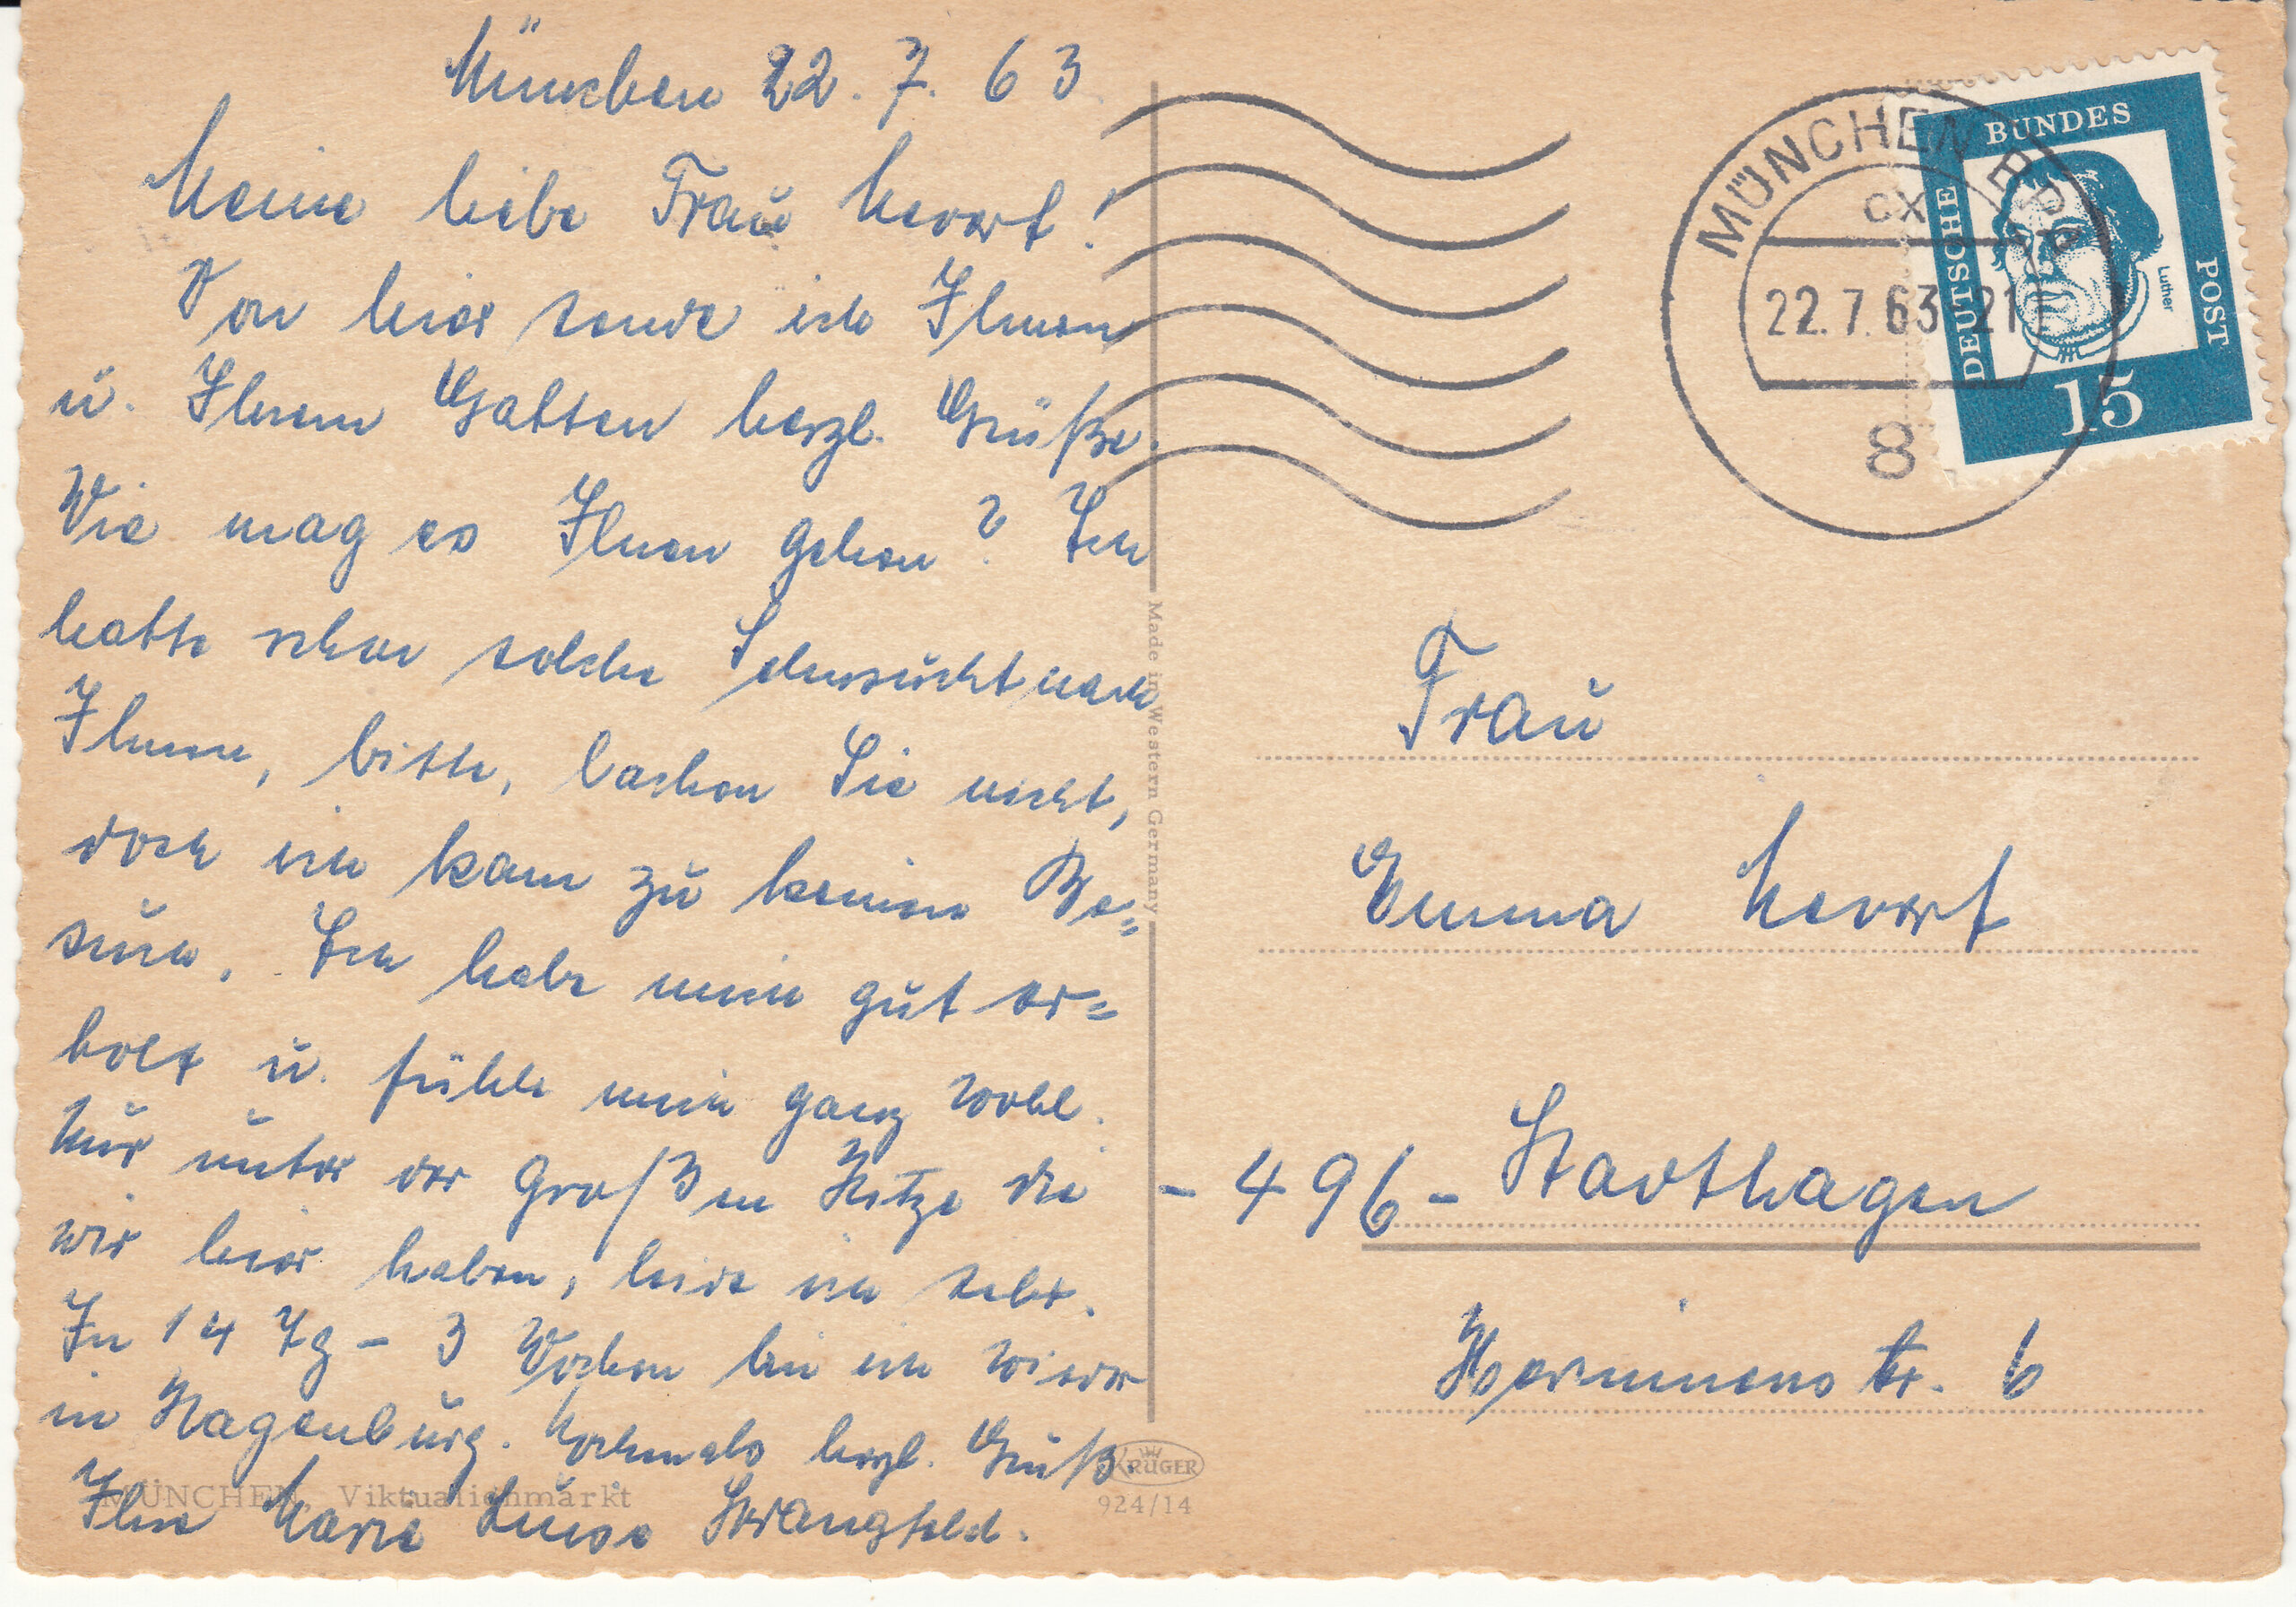 München 22. 7. 63.
Meine liebe Frau Mevert!
Von hier sende ich Ihnen
u. Ihrem Gatten herzl. Grüße.
Wie mag es Ihnen gehen? Ich
hatte schon solche Sehnsucht nach
Ihnen, bitte, lachen Sie nicht,
doch ich kam zu keinem Be=
such. Ich habe mich gut er=
holt u. fühle mich ganz wohl.
Nur unter der großen Hitze die
wir hier haben, leide ich sehr.
In 14 Tg - 3 Wochen bin ich wieder
in Hagenburg. Nochmals herzl. Grüß.
Ihre Marie Luise Strangfeld.
MÜNCHEN, Viktualienmarkt
KRÜGER
924/14
Made in Western Germany
MÜNCHEN BPP
cx
22.7.63-21
8
DEUTSCHE BUNDESPOST
Luther
15
Frau
Emma Mevert
- 496 - Stadthagen
Herminenstr. 6